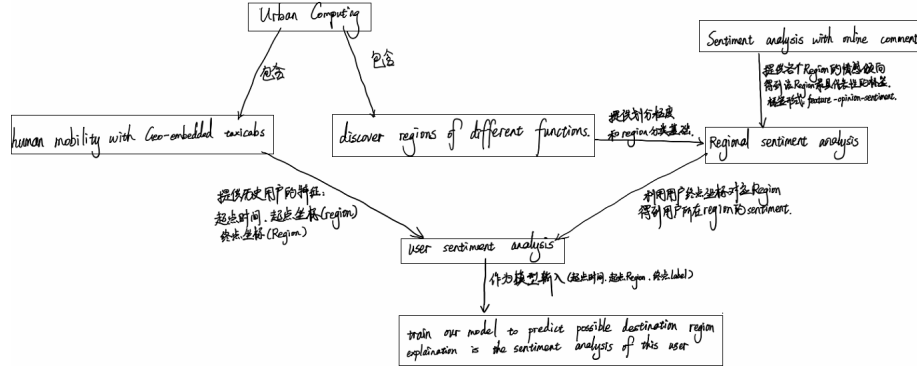 Urban Computing
Sentiment analysis with online comment
包含
包含
提供各个Region的情感倾向
得到该Region最具代表性的标签.
标签形式: feature-opinion-sentiment.
human mobility with Geo-embedded taxicabs
discover regions of different functions.
提供划分粒度
和region分类基础.
Regional sentiment analysis
提供历史用户的特征:
起点时间、起点坐标(region)
终点坐标(Region)
利用用户终点坐标对应Region
得到用户所在region的sentiment.
user sentiment analysis
作为模型输入(起点时间、起点Region、终点label)
train our model to predict possible destination region
explaination is the sentiment analysis of this user